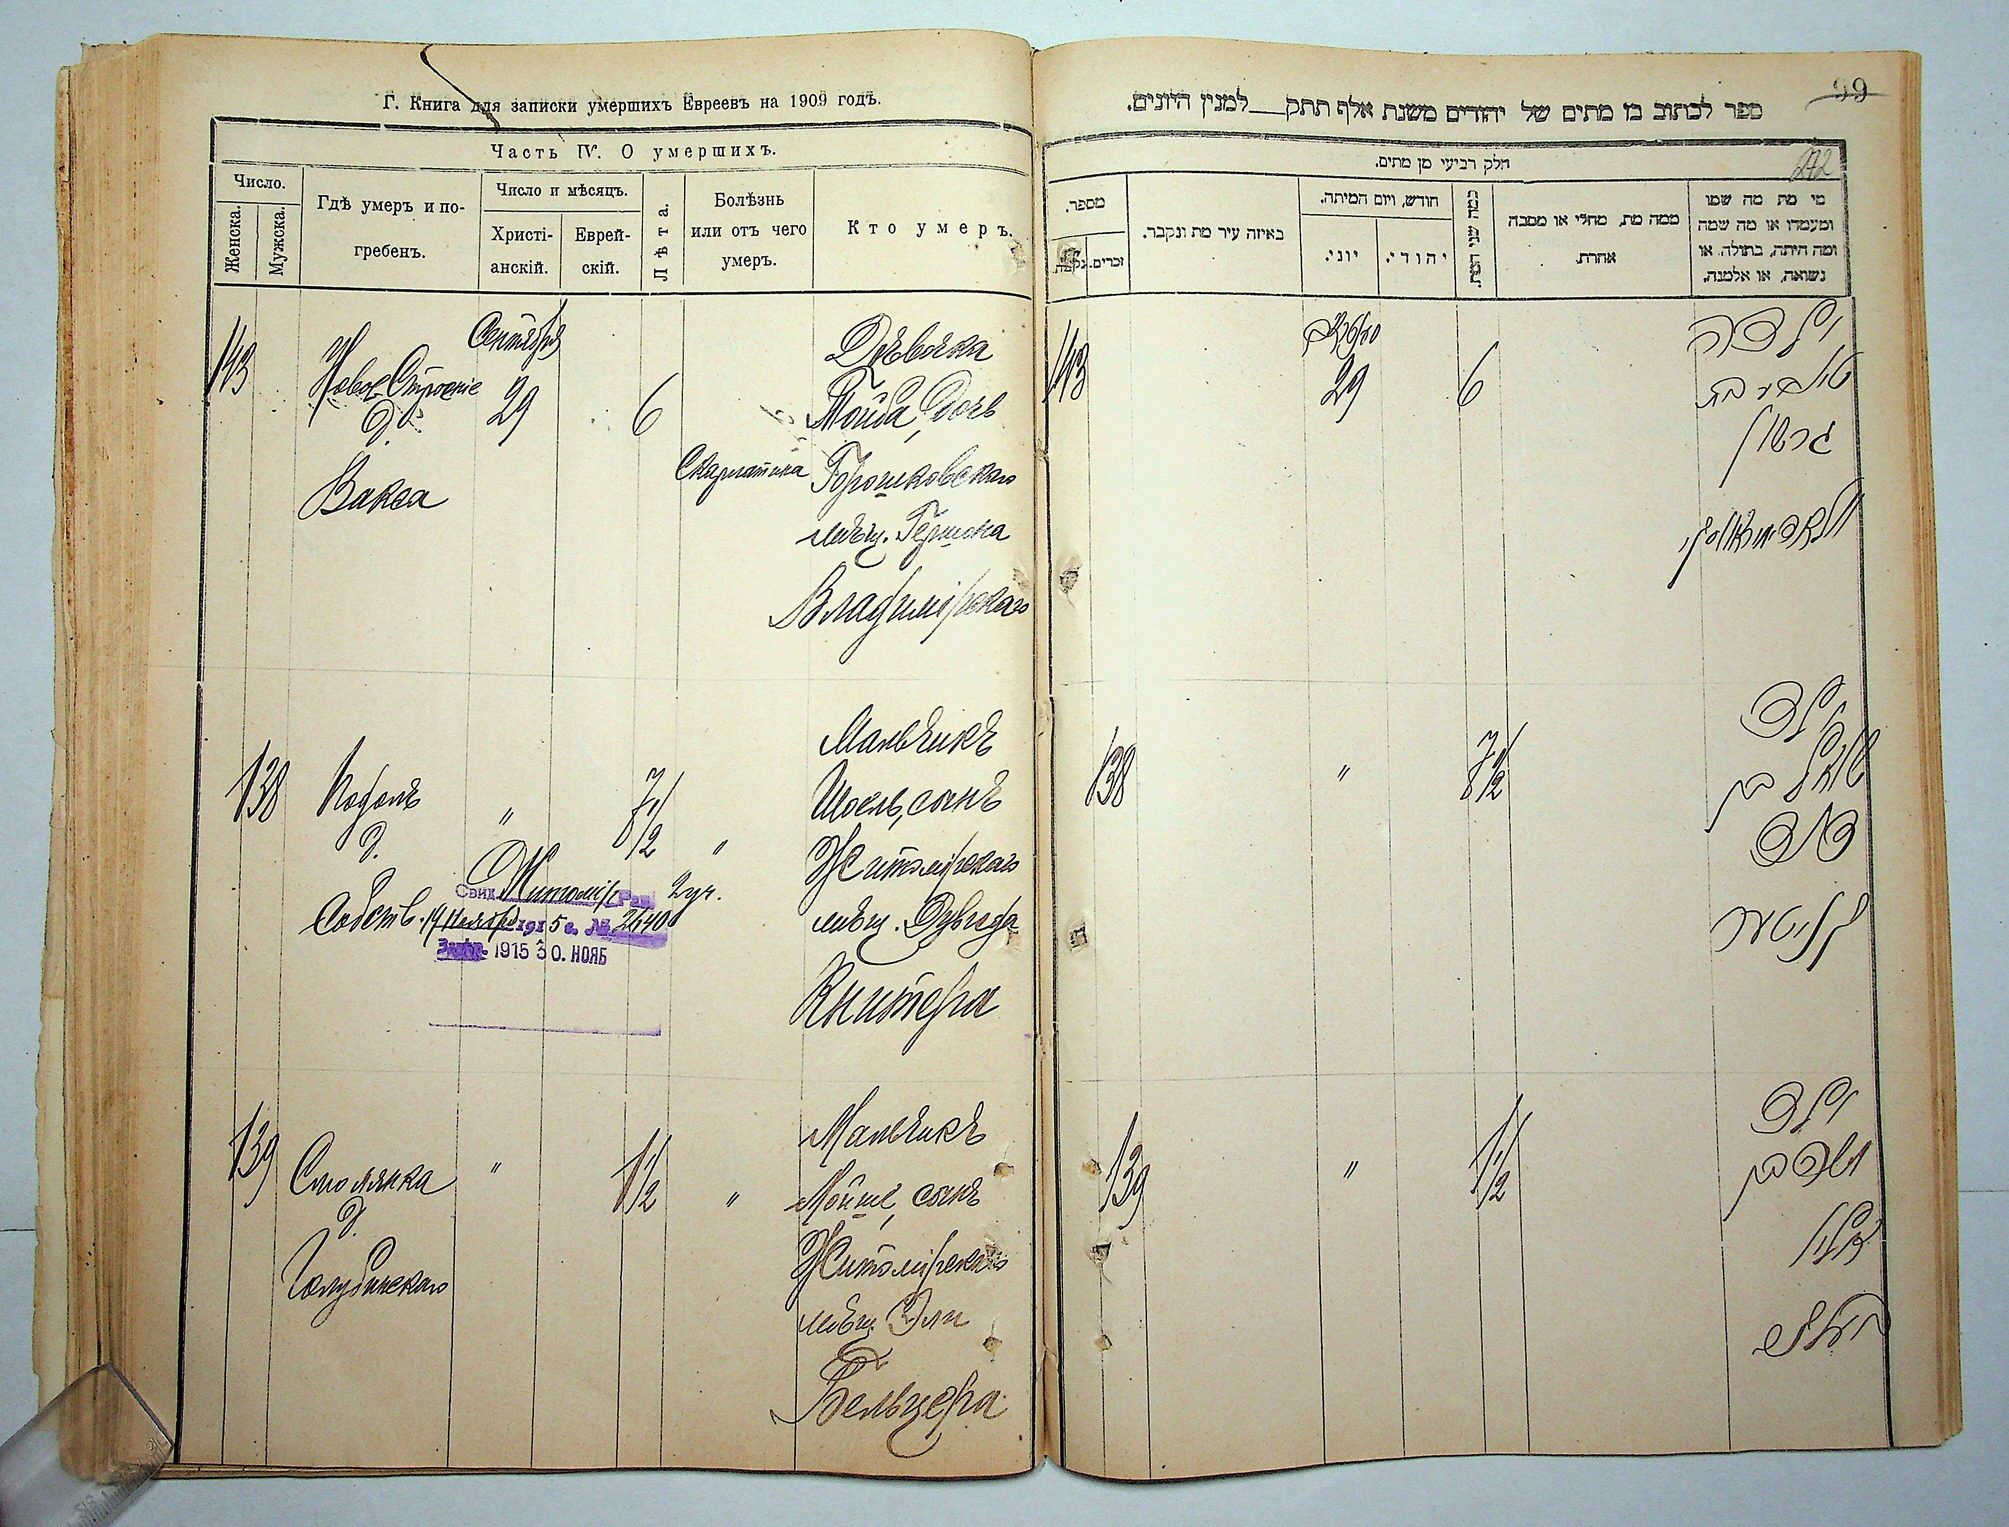 Г. Книга для записки умершихъ Евреевъ на 1909 годъ.
Часть IV. О умершихъ.
Число.
Женска.
Мужска.
Гдѣ умеръ и по-
гребенъ.
Число и мѣсяцъ.
Христі-
анскій.
Еврей-
скій.
Лѣта.
Болѣзнь
или отъ чего
умеръ.
Кто умеръ.
143
Новое Строеніе
д.
Вакса
Сентября
29
6
Скарлатина
Дѣвочка
Тойба, дочь
Горошковскаго
мѣщ. Гершона
Владимірскаго
138
Подолъ
д.
Собств.
"
7 1/2
"
Мальчикъ
Шоель, сынъ
Житомірскаго
мѣщ. Дувида
Книтера
Свид. Житомір. Рав. 2 уч.
19 Ноября 1915 г. № 2640
1915 30. НОЯБ
139
Смолянка
д.
Голубинскаго
"
1 1/2
"
Мальчикъ
Мойше, сынъ
Житомірскаго
мѣщ. Эли
Бельцера
99
ספר לכתוב בו מתים של יהודים משנת אלף תתק__למנין היונים.
272
חלק רביעי מן מתים.
מי מת מה שמו
ומעמדו או מה שמה
ומה היתה, בתולה או
נשואה, או אלמנה.
ממה מת, מחלי או מסבה
אחרת.
כמה שני המת.
חודש, ויום המיתה.
יהודי.
יוני.
באיזה עיר מת ונקבר.
מספר.
זכרים.
נקבות.
ילדה
טויבע בת
גרשון
וולאדימירסקי
6
29
143
ילד
שואל בן
דוד
קניטער
7 1/2
"
138
ילד
משה בן
עלי
בעלצער
1 1/2
"
139